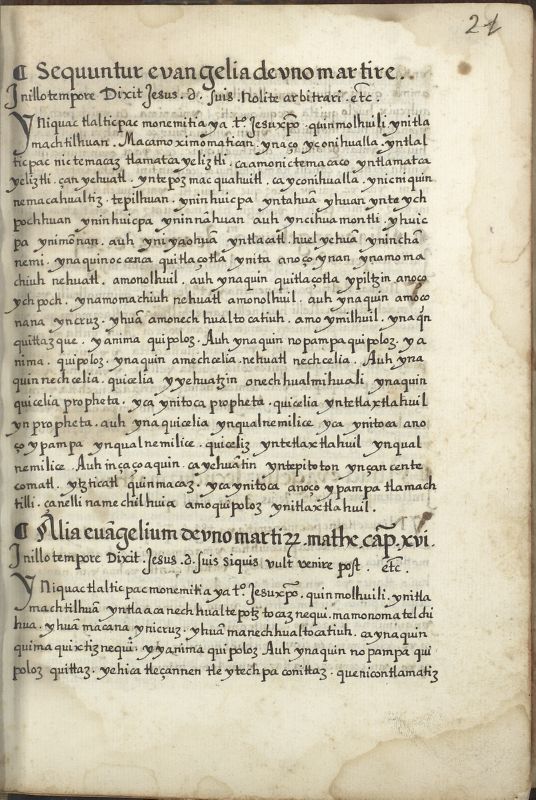 21
¶ Sequuntur evangelia de vno martire..
Jn illo tempore Dixit Jesus. d. suis. Nolite arbitrari. etc.
YNiquac tlalticpac monemitia ya to. Jesuxpo. quinmolhuili ynitla
machtilhuan. Macamo ximomatican, ynaço yconihualla. yntlal
ticpac nictemacaz tlamatcayeliztli. caamonictemacaco yntlamatca
yeliztli. çan yehuatl. yntepoz macquahuitl. ca yconihualla. ynicniquin
nemacahualtiz. tepilhuan. yninhuicpa yntahuā yhuan ynteych
pochhuan yninhuicpa ynin nāhuan auh yncihuamontli. yhuic
pa ynimōnan. auh yniyaohuā yntlacatl. huel yehuā ynincha
nemi. ynaquin occenca quitlaçotla ynita anoço ynan ynamoma
chiuh nehuatl. amonolhuil. auh ynaquin quitlaçotla ypiltzin anoço
ychpoch. ynamomachiuh nehuatl amonolhuil. auh ynaquin amoco
nana yncruz. yhuā amonech hualtocatiuh. amo ymilhuil. ynaqn
quittazque. yyanima quipoloz. Auh ynaquin nopampa quipoloz. y a
nima. quipoloz. ynaquin amechcelia. nehuatl nechcelia. Auh yna
quin nechcelia. quicelia yyehuatzin onechhualmihuali ynaquin
quicelia propheta. yca ynitoca propheta. quicelia yntetlaxtlahuil
yn propheta. auh ynaquicelia ynqualnemilice yca ynitoca ano
ço ypampa ynqualnemilice. quiceliz yntetlaxtlahuil ynqual
nemilice. Auh inçaçoaquin. cayehuātin yntepitoton ynçancente
comatl. ytzticatl quinmacaz. yca ynitoca anoço ypampa tlamach
tilli. canelli namechilhuia amoquipoloz ynitlaxtlahuil.
¶ Alia euāgelium de vno martirz. mathe. cap. xvi.
Jn illo tempore Dixit. Jesus. d. suis siquis vult venire post. etc.
YNiquac tlalticpac monemitia ya to. Jesuxpo. quinmolhuili. ynitla
machtilhuā yntlaacanechhualtepotztocaznequi. mamonomatelchi
hua. yhuā macana ynicruz. yhuā manechhualtocatiuh. ca ynaquin
quimaquixtiznequi. yyanima quipoloz Auh ynaquin nopampa qui
poloz quittaz. yehica tleçannen tle ytech pa conittaz. quenicontlamatiz